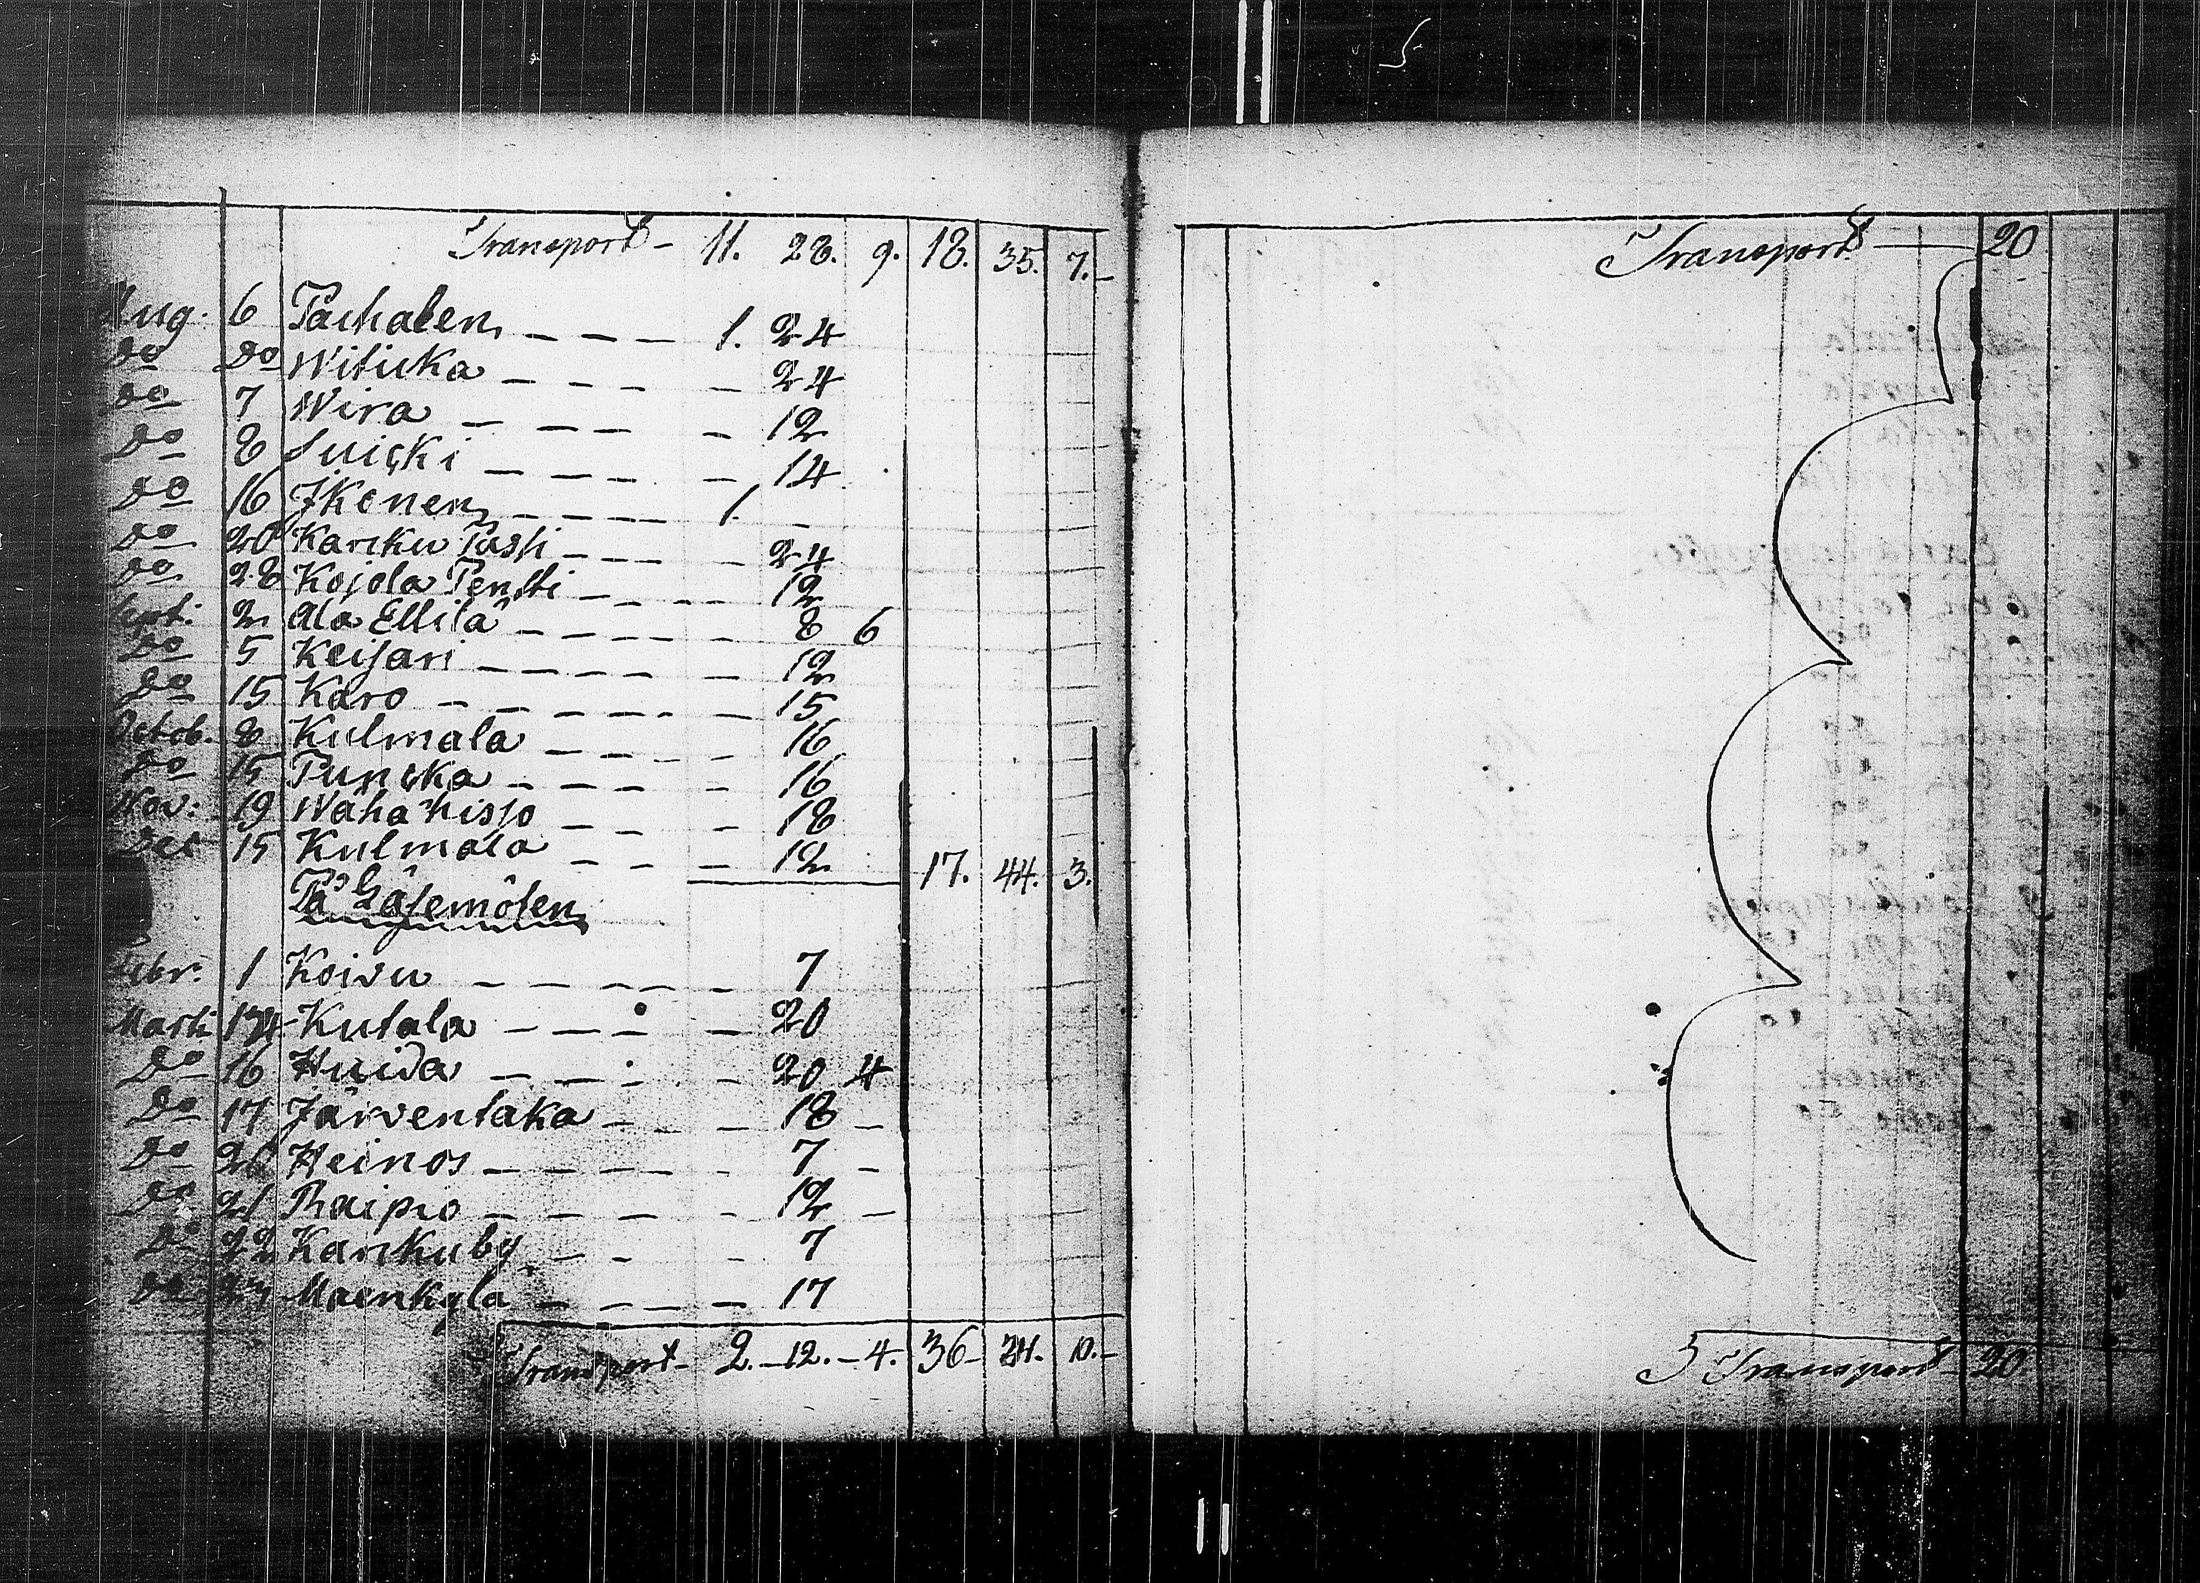 Transport - 11. 28. 9. 18. 35. 7. -
Aug. 6 Pachalen - - - - 1. 24
Do Do Witicka - - - - - 24
Do 7 Wira - - - - - 12
Do 8 Suicki - - - - - 14
Do 16 Ikonen - - - - 1. -
Do 20 Karcku Passi - - - 24
Do 28 Kojola Pentti - - - - 12
Sept: 2 Ala Ellilä - - - - - 8 6
Do 5 Keijari - - - - - 12
Do 15 Karo - - - - - - 15
Octob. 8 Kulmala - - - - 16
Do 15 Puncka - - - - - 16
Nov: 19 Wäha Kisso - - - 18
Dec 15 Kulmala - - - 12 17. 44. 3.
På Gäsemôten
Febr. 1 Koivu - - - - - 7
Marti Kutala - - - - 20
Do 16 Huida - - - - 20 4
Do 17 Järventaka - - - 18 -
Do 20 Heinos - - - - - 7 -
Do 21 Raipio - - - - 12 -
Do 22 Karkuby - - - 7
Do Maenkyla - - - - 17
Transport - 2. - 12. - 4. 36 - 24. 10. -
Transport - 20
Transport - 20